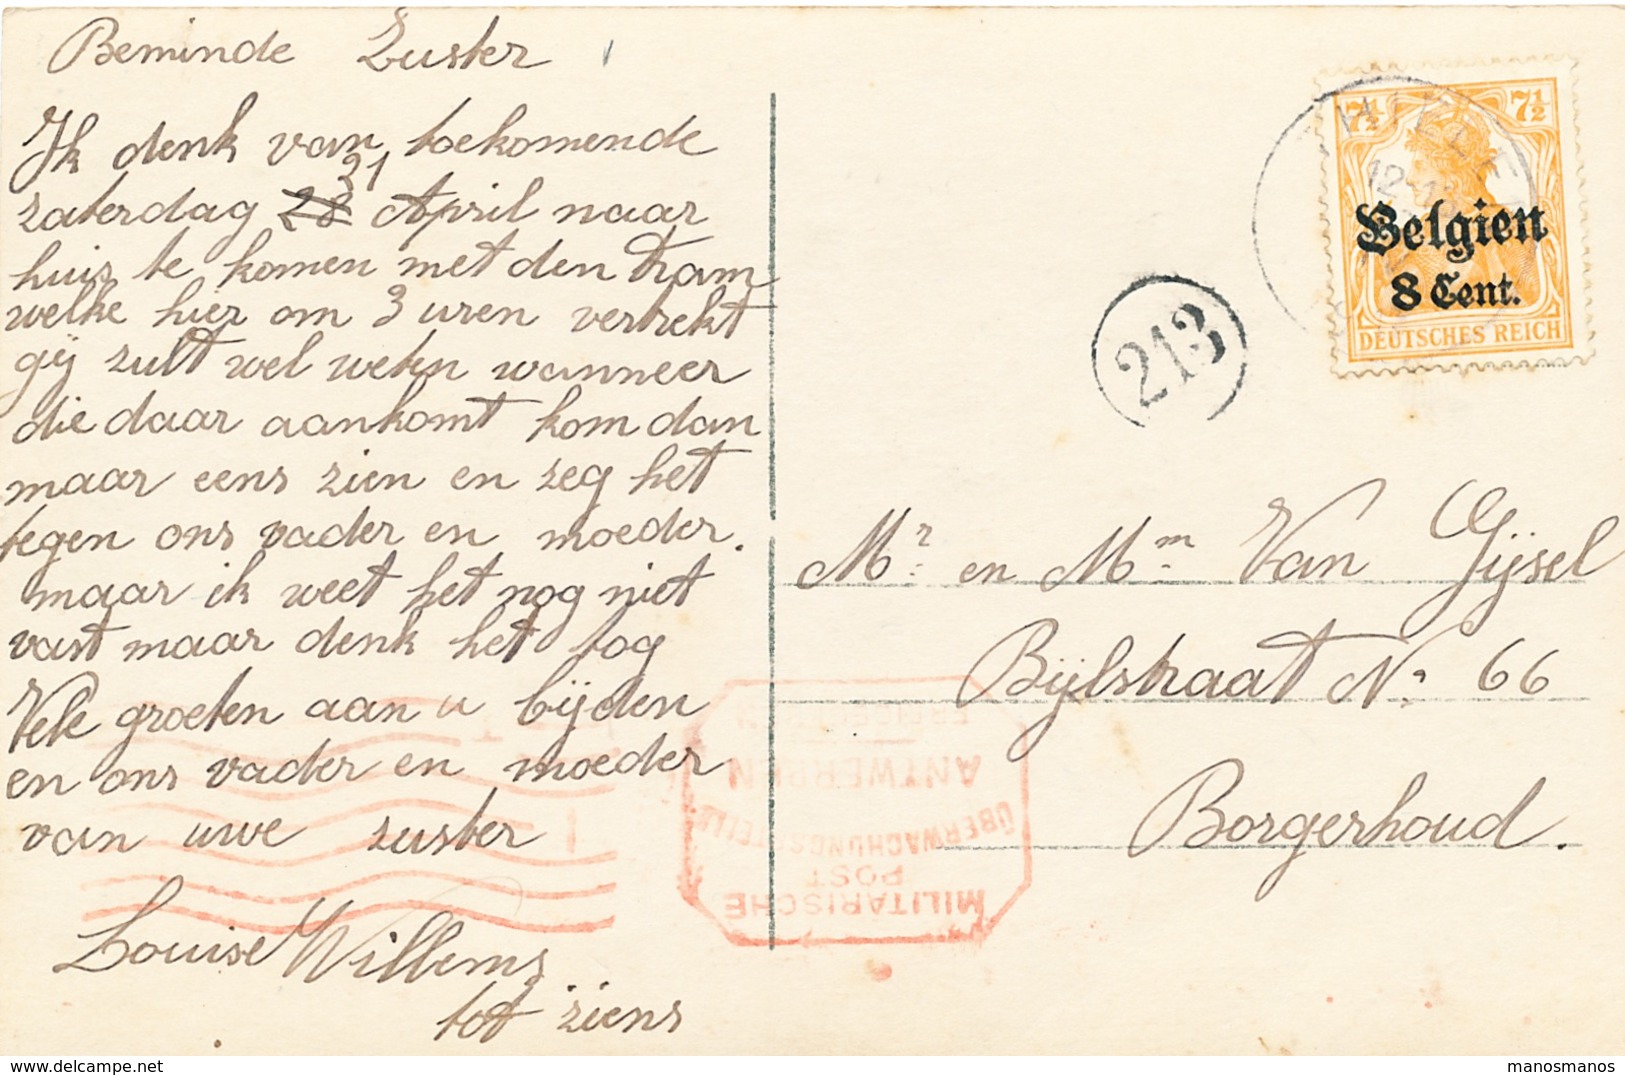 Beminde Zuster
Ik denk van toekomende
zaterdag 28 21 April naar
huis te komen met den tram
welke hier om 3 uren vertrekt
gij zult wel weten wanneer
die daar aankomt kom dan
maar eens zien en zeg het
tegen ons vader en moeder.
maar ik weet het nog niet
vast maar denk het tog
Vele groeten aan u bijden
en ons vader en moeder
van uwe zuster
Louise Willems
tot ziens
7½ 7½
Belgien
8 Cent.
DEUTSCHES REICH
213
Mr. en Mm. Van Gijsel
Bijlstraat No. 66
Borgerhoud.
MILITÄRISCHE
POST
ÜBERWACHUNGSSTELLE
ANTWERPEN
manosmanos